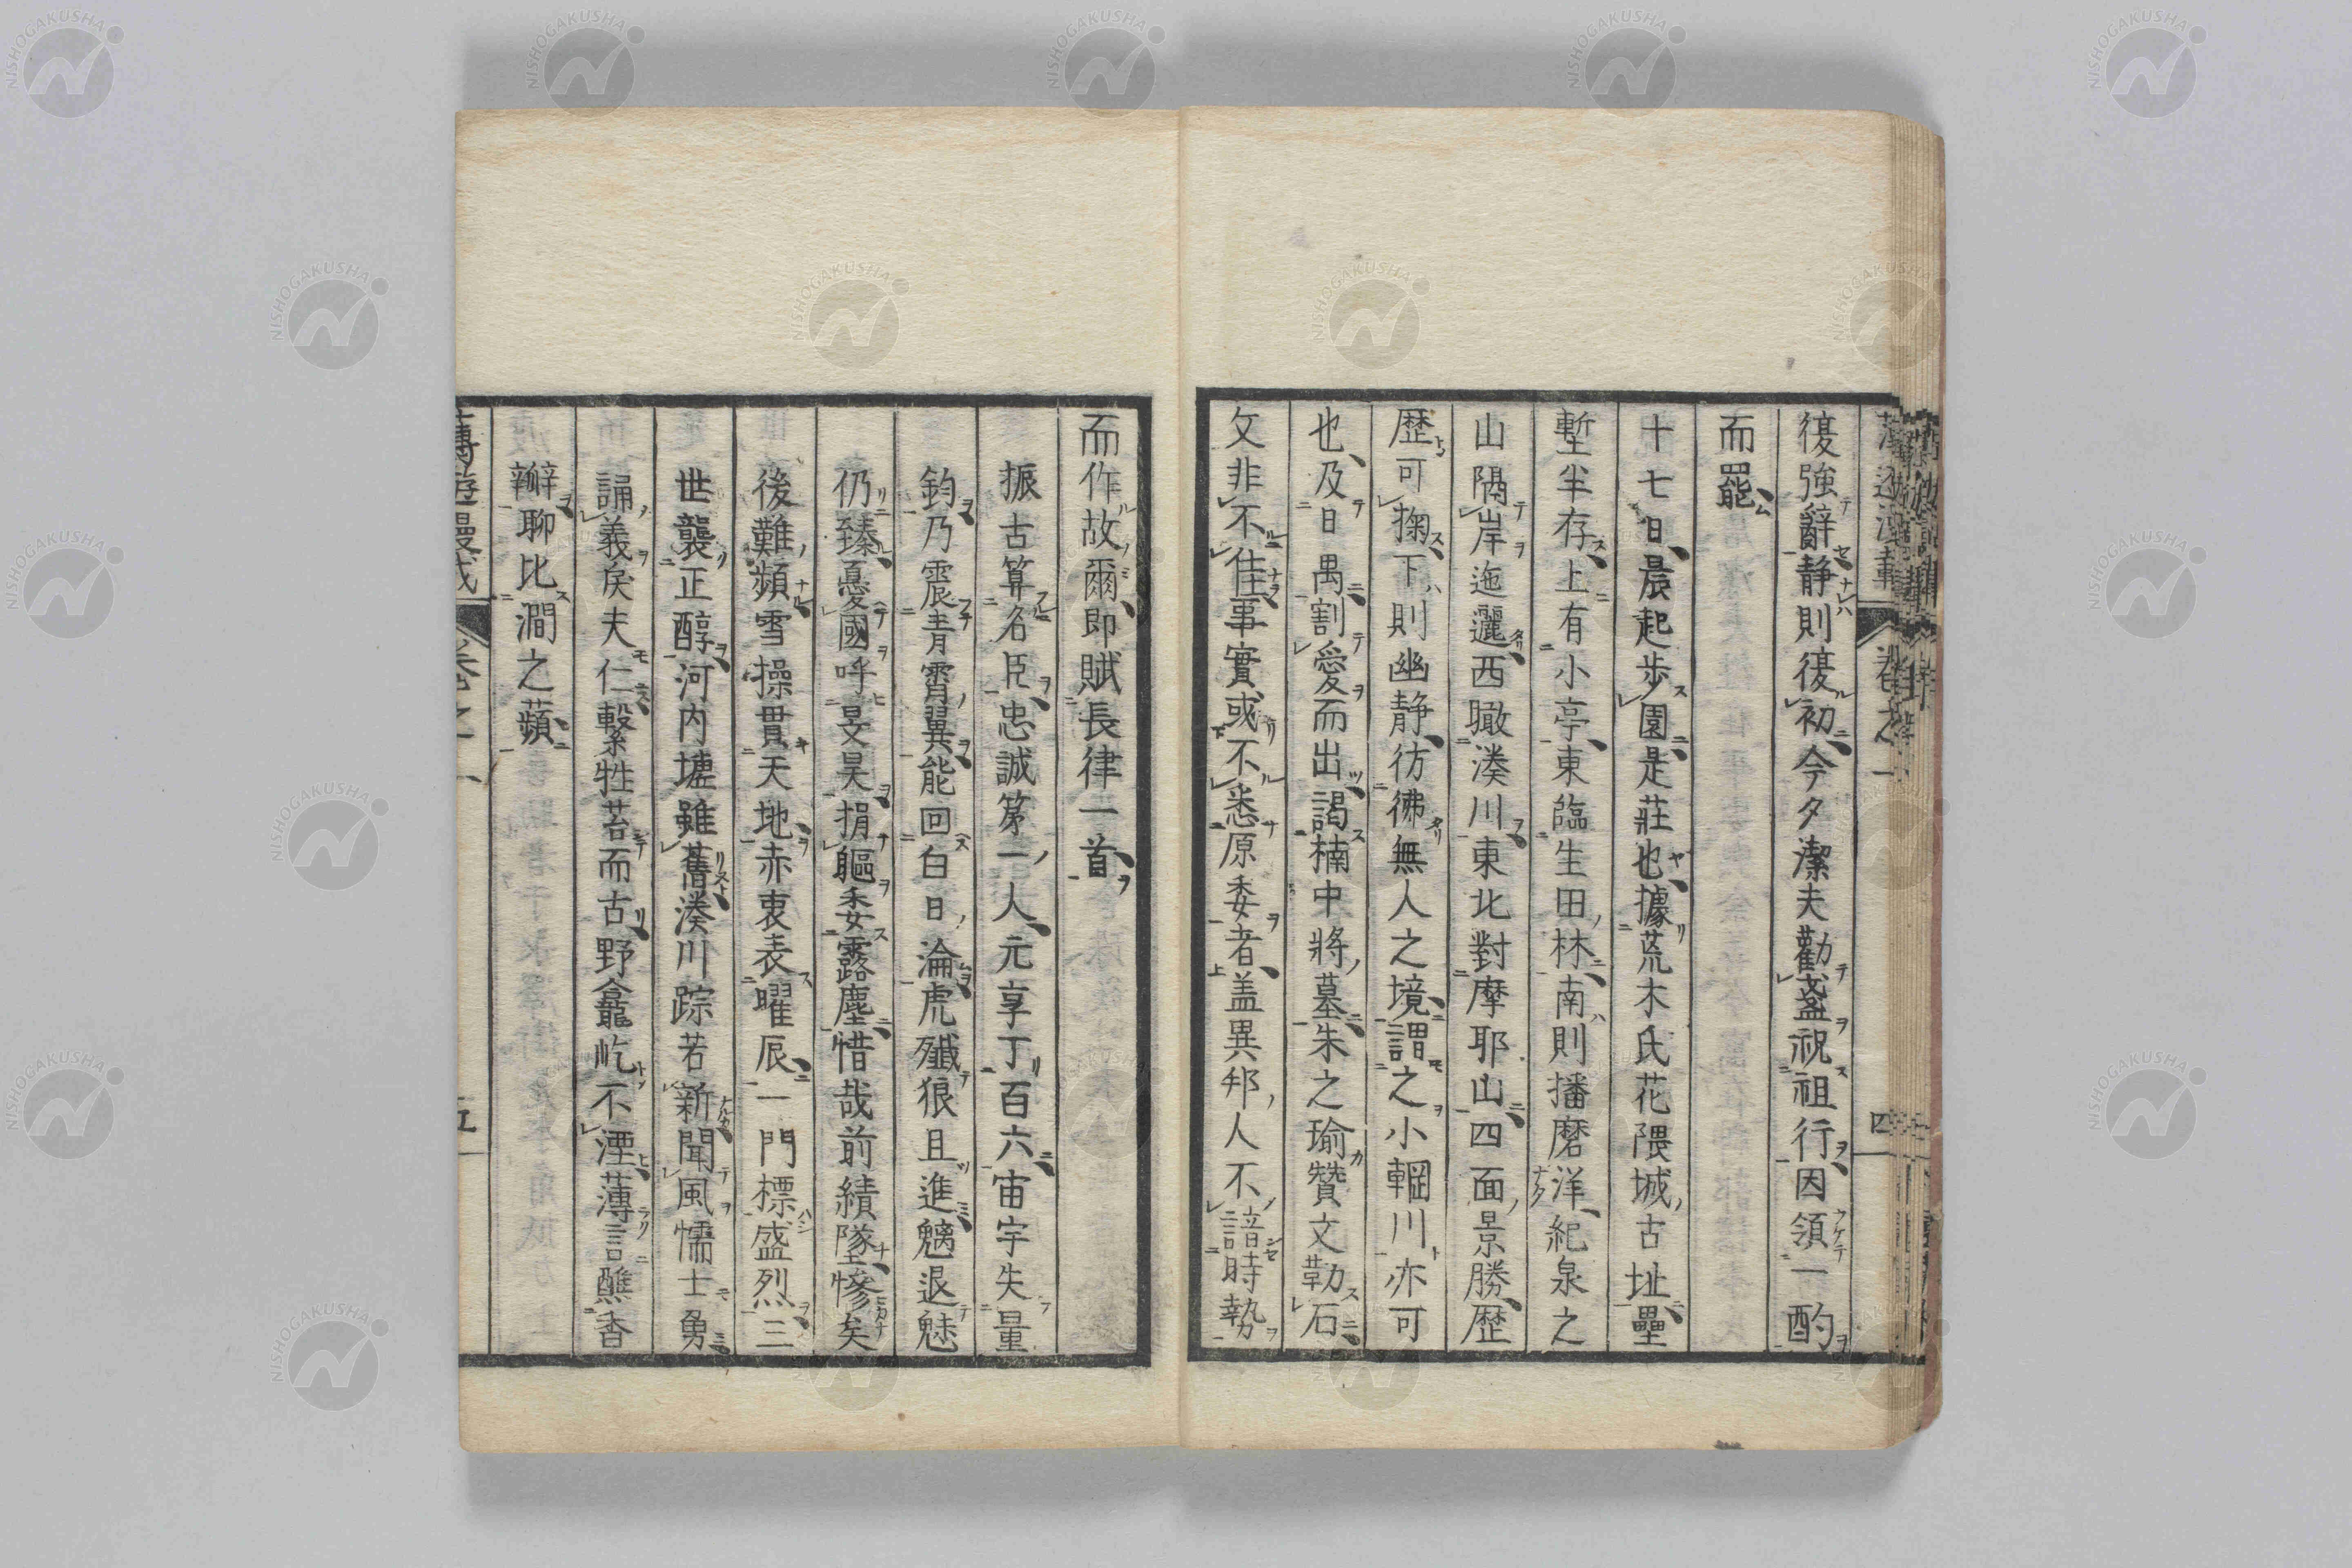 復強辭静則復初今夕潔夫勸盞祝祖行因領一酌
而罷
十七日晨起步園是莊也據荒木氏花隈城古址壘
塹半存上有小亭東臨生田林南則播磨洋紀泉之
山隔岸迤邐西瞰湊川東北對摩耶山四面景勝歷
歷可掬下則幽静彷彿無人之境謂之小輞川亦可
也及日禺割愛而出謁楠中將墓朱之瑜贊文勒石
文非不佳事實或不悉原委者盖異邦人不諳時勢
而作故爾即賦長律一首
振古算名臣忠誠第一人元享丁百六宙宇失量
鈞乃震青霄翼能回白日淪虎殲狼且進魑退魅
仍臻憂國呼旻昊捐軀委露塵惜哉前績墜慘矣
後難頻雪操貫天地赤衷表曜辰一門標盛烈三
世襲正醇河内墟雖舊湊川踪若新聞風懦士勇
誦義矦夫仁繫牲苔而古野龕屹不湮薄言醮杳
辮聊比澗之蘋
卷之一
四
NISHOGAKUSHA